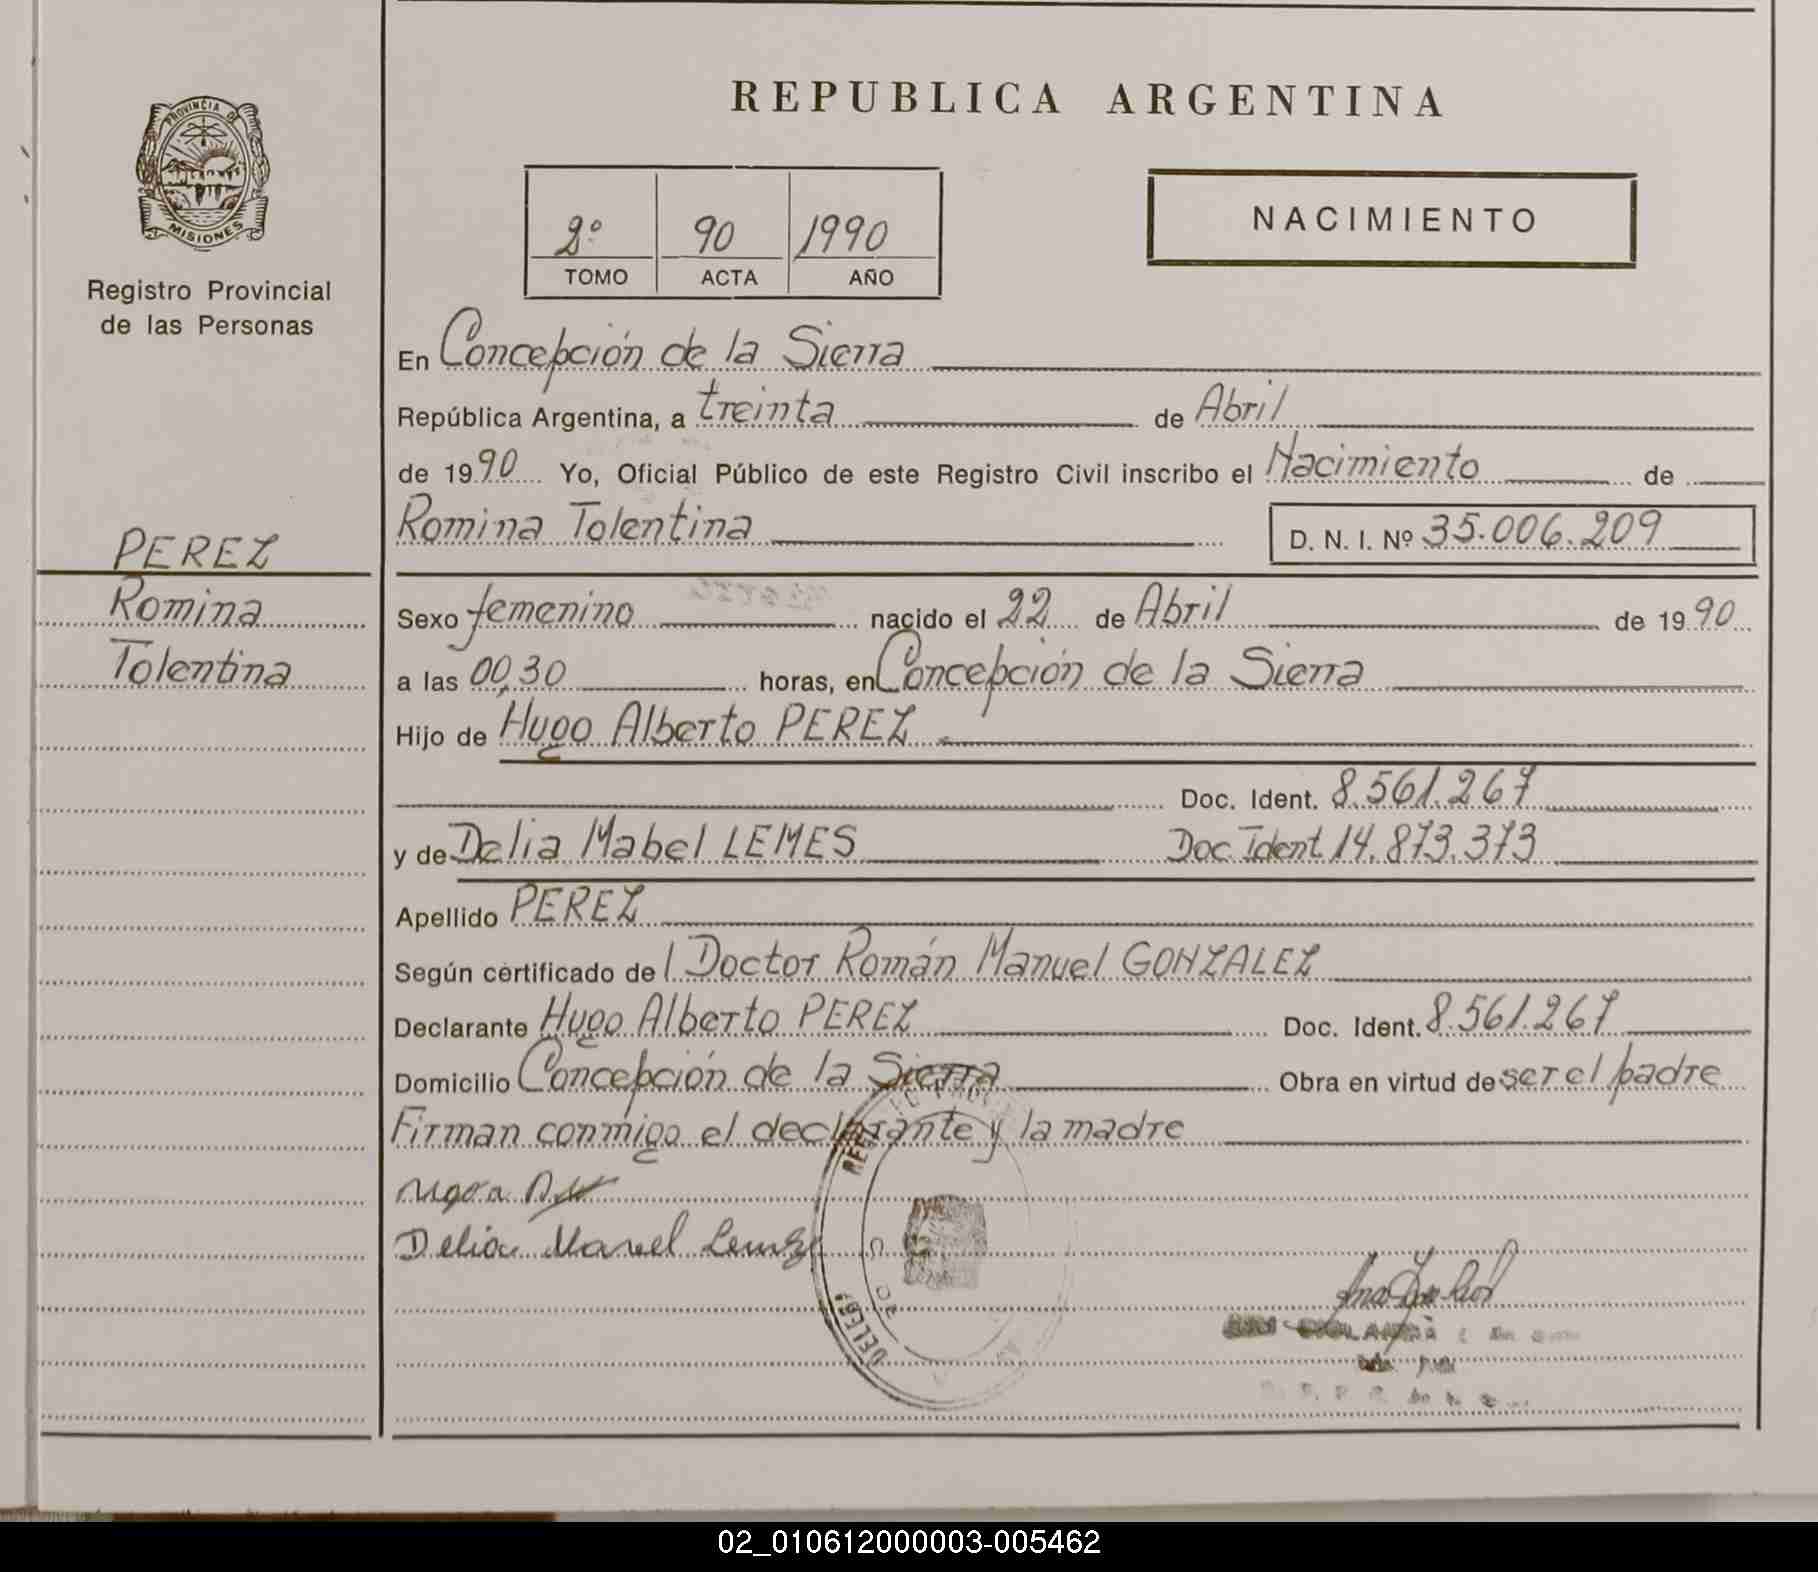 REPUBLICA ARGENTINA
PROVINCIA DE
MISIONES
Registro Provincial
de las Personas
2º 90 1990
TOMO ACTA AÑO
NACIMIENTO
En Concepción de la Sierra
República Argentina, a treinta de Abril
de 1990 Yo, Oficial Público de este Registro Civil inscribo el Nacimiento de
Romina Tolentina D. N. I. Nº 35.006.209
PEREZ
Romina
Tolentina
Sexo femenino nacido el 22 de Abril de 1990
a las 00,30 horas, en Concepción de la Sierra
Hijo de Hugo Alberto PEREZ
Doc. Ident. 8.561.267
y de Delia Mabel LEMES Doc Ident 14.873.373
Apellido PEREZ
Según certificado de l Doctor Román Manuel GONZALEZ
Declarante Hugo Alberto PEREZ Doc. Ident. 8.561.267
Domicilio Concepción de la Sierra Obra en virtud de ser el padre
Firman conmigo el declarante y la madre
Delia
02_010612000003-005462